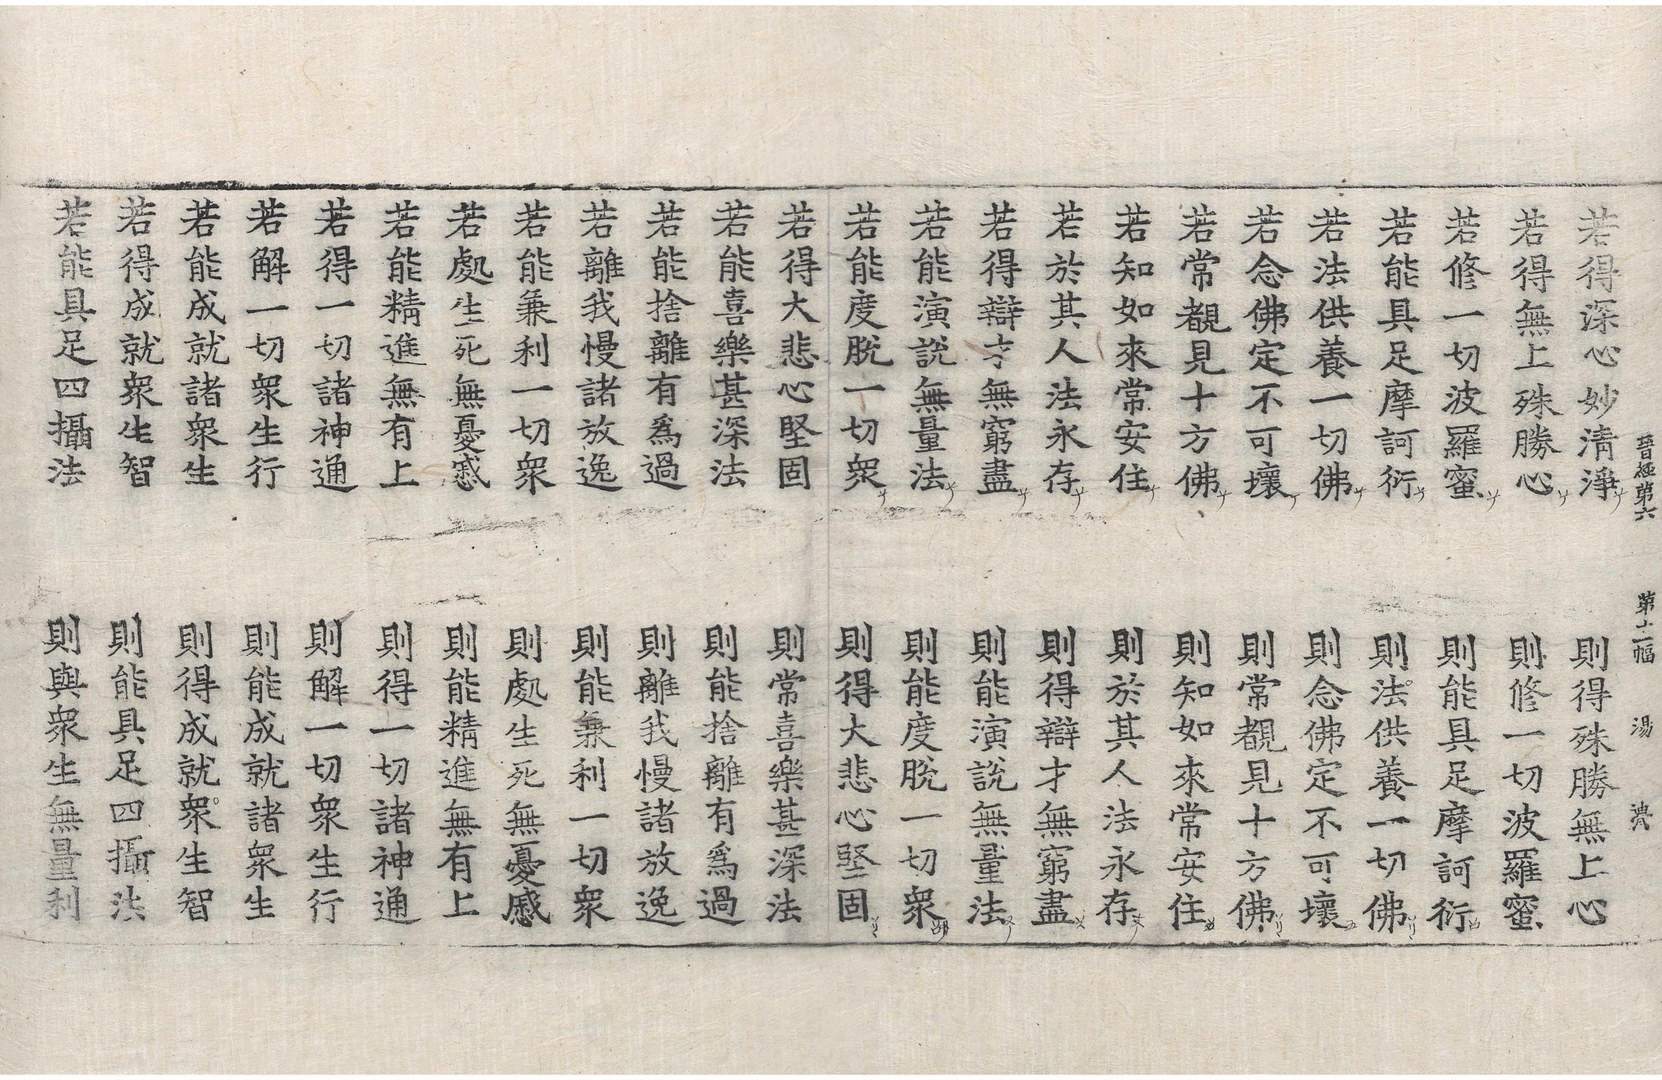 晉經第六 第十二幅 湯
若得深心妙清淨 則得殊勝無上心
若得無上殊勝心 則修一切波羅蜜
若修一切波羅蜜 則能具足摩訶衍
若能具足摩訶衍 則法供養一切佛
若法供養一切佛 則念佛定不可壞
若念佛定不可壞 則常覩見十方佛
若常覩見十方佛 則知如來常安住
若知如來常安住 則於其人法永存
若於其人法永存 則得辯才無窮盡
若得辯才無窮盡 則能演說無量法
若能演說無量法 則能度脫一切衆
若能度脫一切衆 則得大悲心堅固
若得大悲心堅固 則常喜樂甚深法
若能喜樂甚深法 則能捨離有爲過
若能捨離有爲過 則離我慢諸放逸
若離我慢諸放逸 則能兼利一切衆
若能兼利一切衆 則處生死無憂慼
若處生死無憂慼 則能精進無有上
若能精進無有上 則得一切諸神通
若得一切諸神通 則解一切衆生行
若解一切衆生行 則能成就諸衆生
若能成就諸衆生 則得成就衆生智
若得成就衆生智 則能具足四攝法
若能具足四攝法 則與衆生無量利